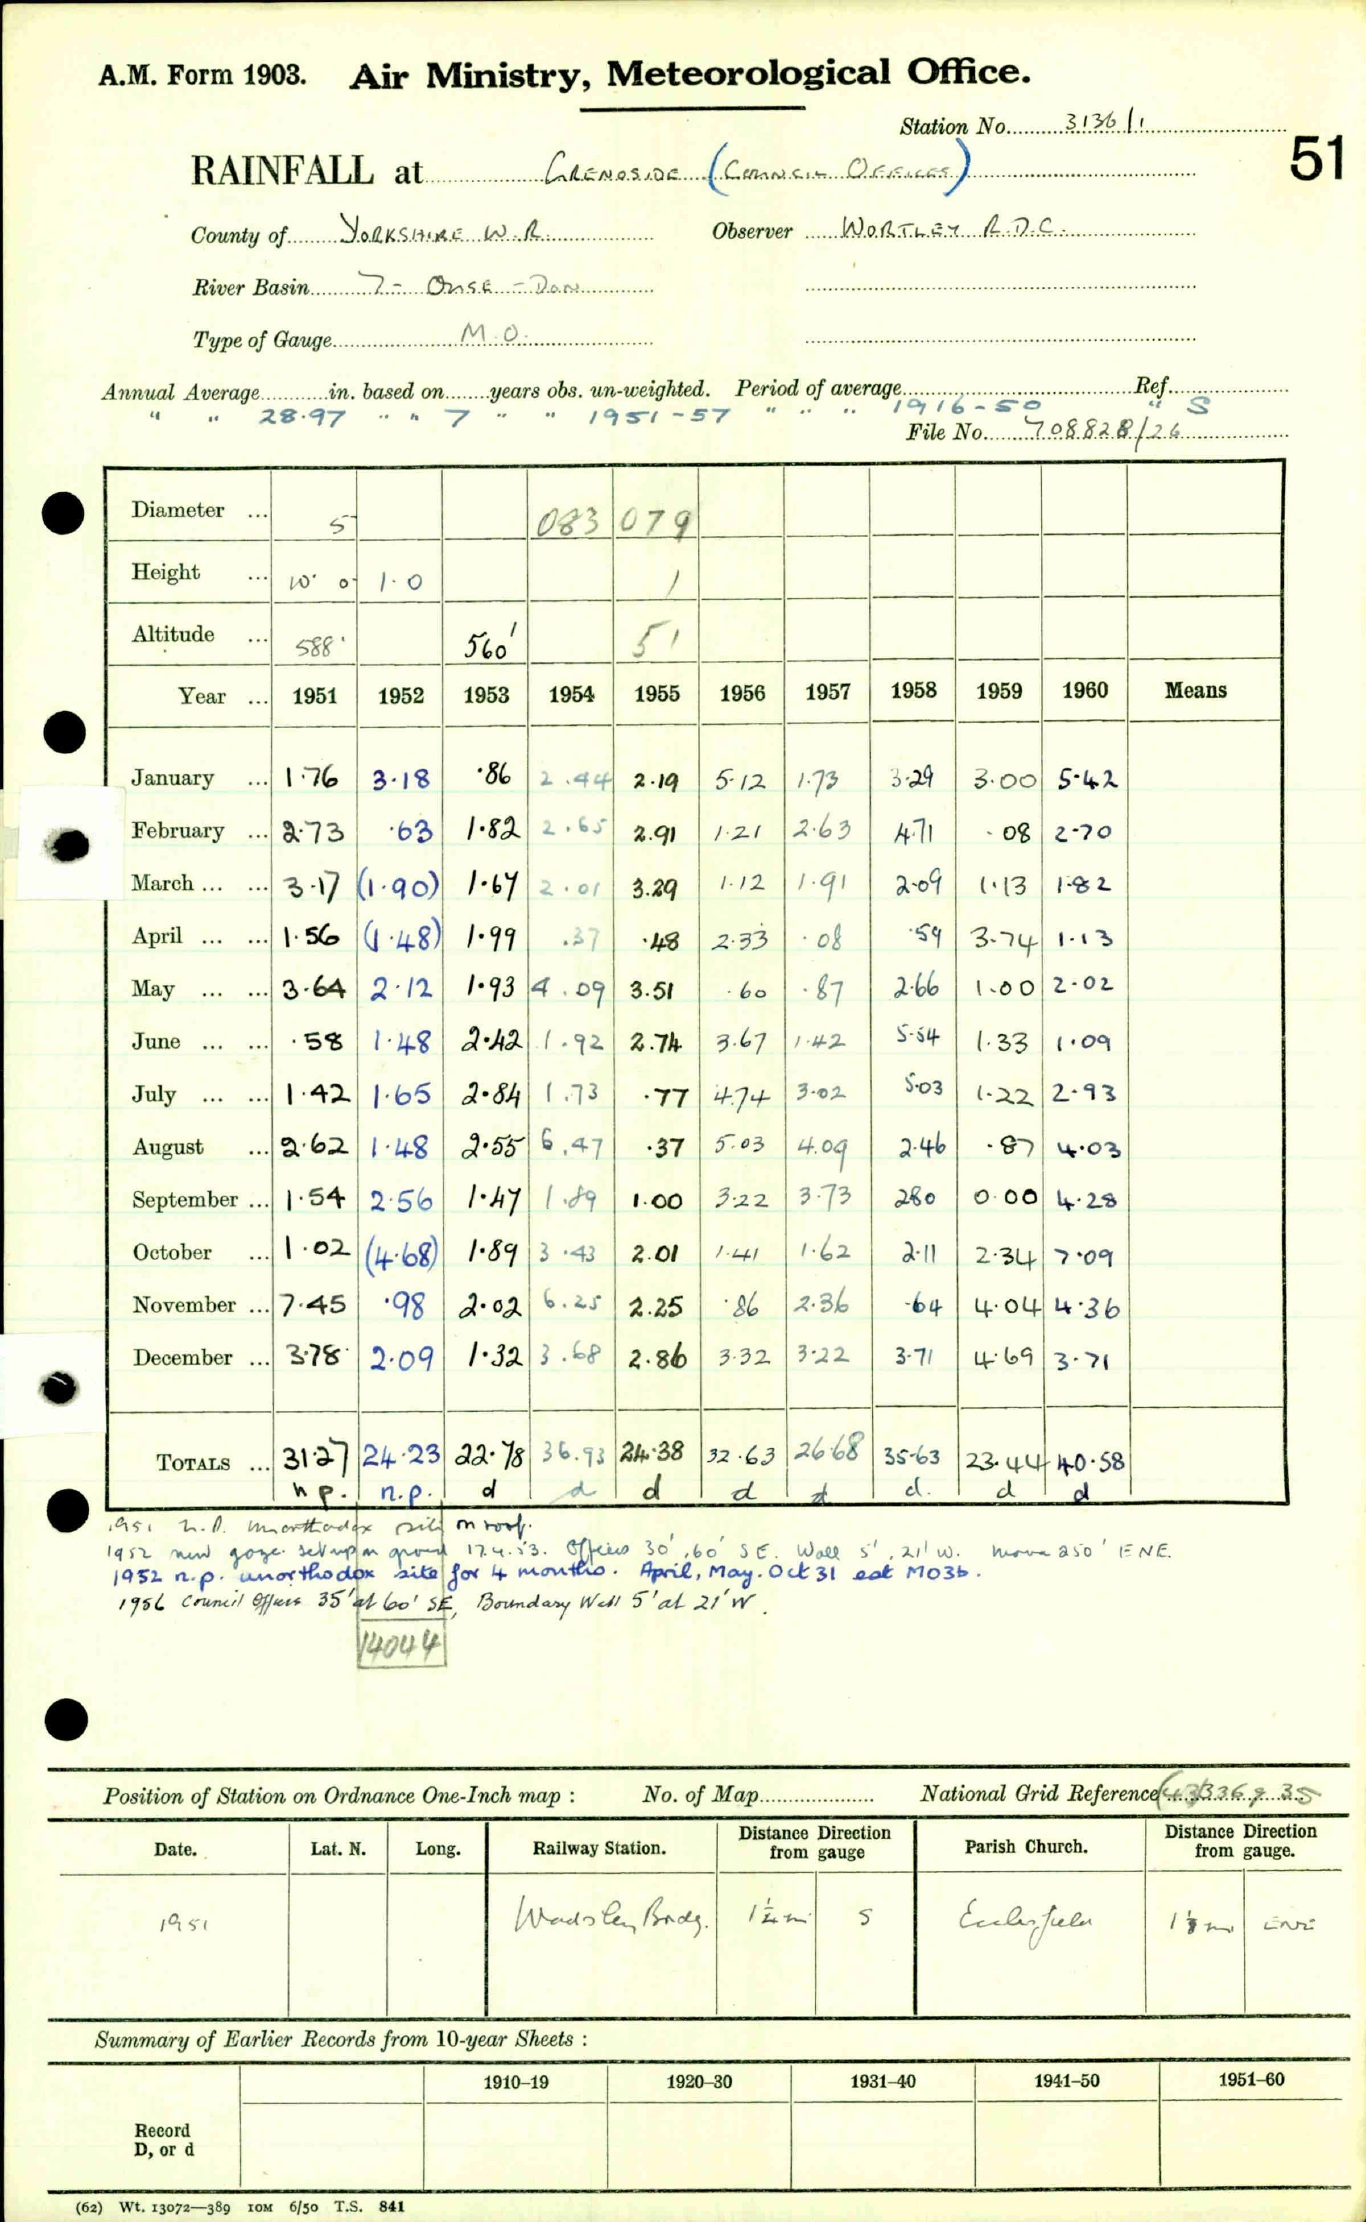 A.M. Form 1903. Air Ministry, Meteorological Office.
Station No. 3136/1
51
RAINFALL at GRENOSIDE (COUNCIL OFFICES)
County of YORKSHIRE W.R. Observer WORTLEY R.D.C.
River Basin 7- OUSE - DON
Type of Gauge M.O.
Annual Average in. based on years obs. un-weighted. Period of average Ref.
" " 28.97 " " 7 " " 1951-57 " " " 1916-50 " S
File No. 708828/26
Diameter ... 5 083 079
Height ... 10' 0 1.0 1
Altitude ... 588' 560' 51
Year ... 1951 1952 1953 1954 1955 1956 1957 1958 1959 1960 Means
January ... 1.76 3.18 .86 2.44 2.19 5.12 1.73 3.29 3.00 5.42
February ... 2.73 .63 1.82 2.65 2.91 1.21 2.63 4.71 .08 2.70
March ... ... 3.17 (1.90) 1.67 2.01 3.29 1.12 1.91 2.09 1.13 1.82
April ... ... 1.56 (1.48) 1.99 .37 .48 2.33 .08 .59 3.74 1.13
May ... ... 3.64 2.12 1.93 4.09 3.51 .60 .87 2.66 1.00 2.02
June ... ... .58 1.48 2.42 1.92 2.74 3.67 1.42 5.54 1.33 1.09
July ... ... 1.42 1.65 2.84 1.73 .77 4.74 3.02 5.03 1.22 2.93
August ... 2.62 1.48 2.55 6.47 .37 5.03 4.09 2.46 .87 4.03
September ... 1.54 2.56 1.47 1.89 1.00 3.22 3.73 2.80 0.00 4.28
October ... 1.02 (4.68) 1.89 3.43 2.01 1.41 1.62 2.11 2.34 7.09
November ... 7.45 .98 2.02 6.25 2.25 .86 2.36 .64 4.04 4.36
December ... 3.78 2.09 1.32 3.68 2.86 3.32 3.22 3.71 4.69 3.71
TOTALS ... 31.27 24.23 22.78 36.93 24.38 32.63 26.68 35.63 23.44 40.58
n p. n.p. d d d d d d. d d
1951 n.p. unorthodox site on roof.
1952 new gauge set up on ground 17.4.53. Offices 30', 60' SE. Wall 5', 21' W. move 250' ENE.
1952 n.p. unorthodox site for 4 months. April, May. Oct 31 est MO3b.
1956 Council Offices 35' at 60' SE, Boundary Wall 5' at 21' W.
14044
Position of Station on Ordnance One-Inch map : No. of Map National Grid Reference (43)336935
Date. Lat. N. Long. Railway Station. Distance from gauge Direction Parish Church. Distance from gauge. Direction
1951 Wadsley Bridg. 1¼ m S Ecclesfield 1⅛ m ENE
Summary of Earlier Records from 10-year Sheets :
1910–19 1920–30 1931–40 1941–50 1951–60
Record
D, or d
(62) Wt. 13072—389 10M 6/50 T.S. 841